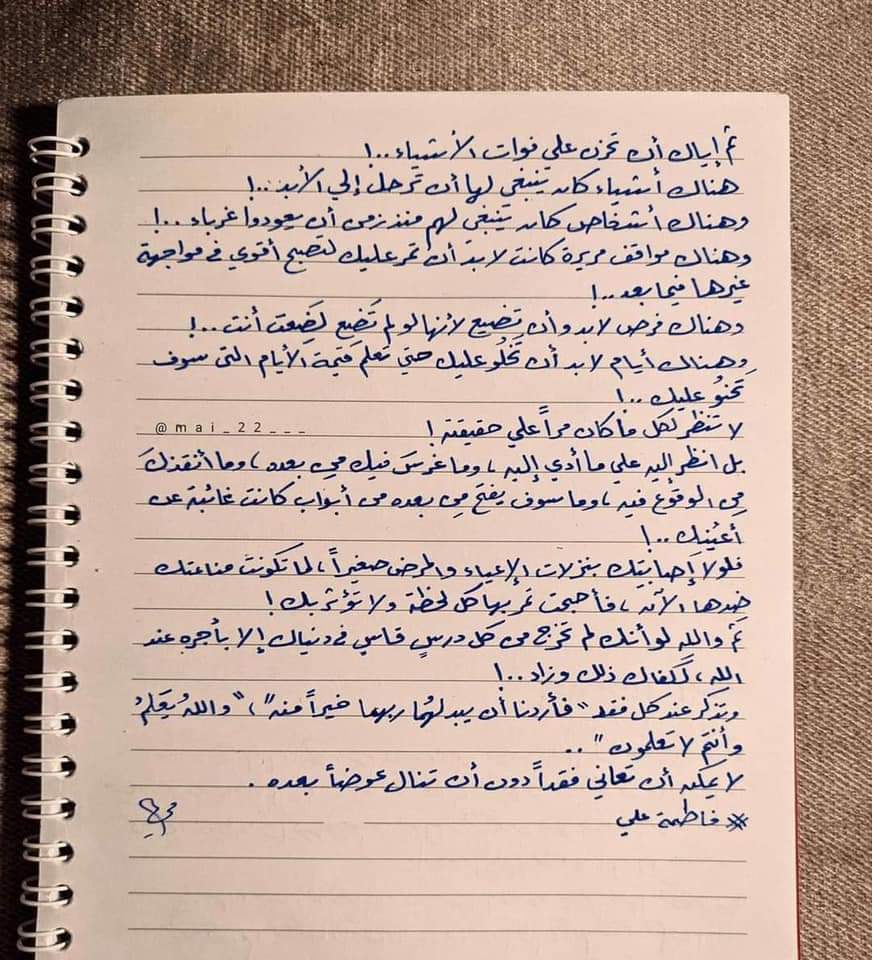 ثم إياك أن تحزن على فوات الأشياء..!
هناك أشياء كان ينبغي لها أن ترحل إلي الأبد..!
وهناك أشخاص كان ينبغي لهم منذ زمن أن يعودوا غرباء..!
وهناك مواقف مريرة كانت لابد أن تمر عليك لتصبح أقوي في مواجهة
غيرها فيما بعد..!
وهناك فرص لابد وأن تضيع لأنها لو لم تَضِع لضِعت أنت..!
وهناك أيام لابد أن تخلُو عليك حتي تعلم قيمة الأيام التى سوف
تحنوُ عليك..!
لا تنظر لكل ما كان مراً علي حقيقته!
@mai_22___
بل انظر إليه علي ما أدي إليه، وما غرسَ فيك من بعده، وما أنقذكَ
مِن الوقوع فيه، وما سوف يفتح مِن بعده من أبواب كانت غائبة عن
أعيُنِك..!
فلولا إصابتك بنزلات الإعياء والمرض صغيراً، لما تكونت مناعتك
ضِدها الآن، فأصبحت تمر بها كل لحظة ولا تؤثر بك!
ثم والله لو أنك لم تخرج من كل درسٍ قاسٍ في دنياك إلا بأجره عند
الله، لَكفاك ذلك وزاد..!
وتذكر عند كل فقد "فأردنا أن يبدلهُما ربهما خيراً منه"، "واللهُ يَعلمُ
وأنتم لا تعلمون"..
لا يمكن أن تعاني فقداً دون أن تنال عوضاً بعده.
* فاطمة علي